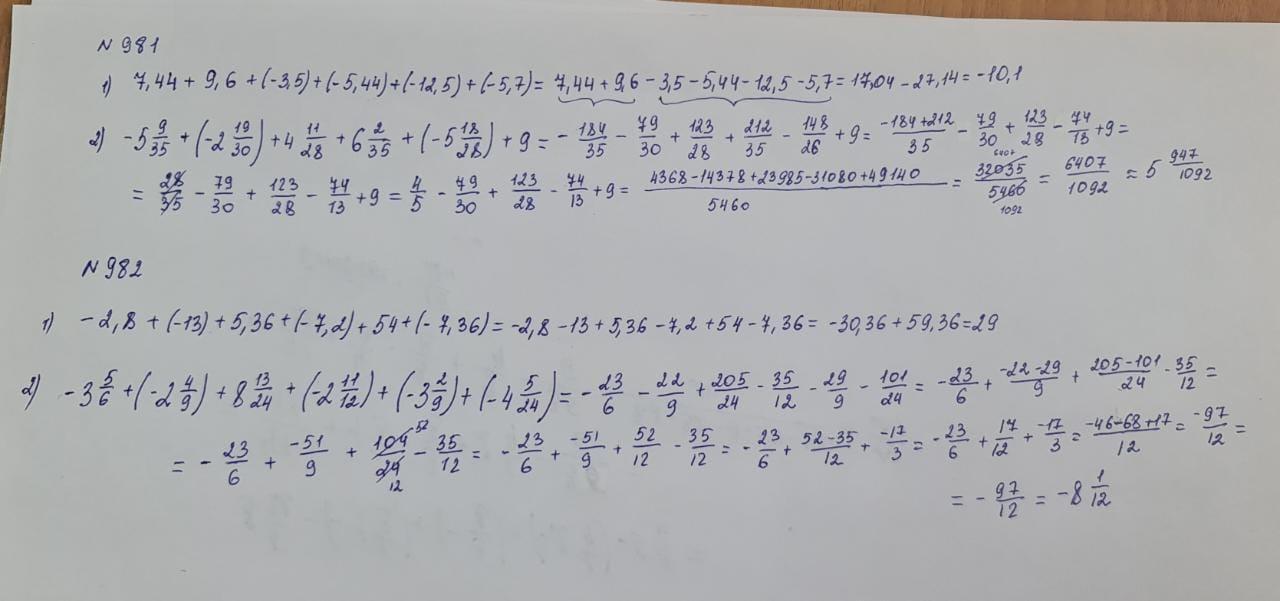 N 981
1) 7,44 + 9,6 + (-3,5) + (-5,44) + (-12,5) + (-5,7) = 7,44 + 9,6 - 3,5 - 5,44 - 12,5 - 5,7 = 17,04 - 27,14 = -10,1
2) -5 9/35 + (-2 19/30) + 4 11/28 + 6 2/35 + (-5 18/28) + 9 = - 184/35 - 79/30 + 123/28 + 212/35 - 148/26 + 9 = -184+212/35 - 79/30 + 123/28 - 74/13 + 9 =
= 28/35 - 79/30 + 123/28 - 74/13 + 9 = 4/5 - 79/30 + 123/28 - 74/13 + 9 = 4368-14378+23985-31080+49140/5460 = 6407 32035/5460 1092 = 6407/1092 = 5 947/1092
N 982
1) -2,8 + (-13) + 5,36 + (-7,2) + 54 + (-7,36) = -2,8 - 13 + 5,36 - 7,2 + 54 - 7,36 = -30,36 + 59,36 = 29
2) -3 5/6 + (-2 4/9) + 8 13/24 + (-2 11/12) + (-3 2/9) + (-4 5/24) = - 23/6 - 22/9 + 205/24 - 35/12 - 29/9 - 101/24 = - 23/6 + -22-29/9 + 205-101/24 - 35/12 =
= - 23/6 + -51/9 + 104 52/24 12 - 35/12 = - 23/6 + -51/9 + 52/12 - 35/12 = - 23/6 + 52-35/12 + -17/3 = - 23/6 + 17/12 + -17/3 = -46-68+17/12 = -97/12 =
= - 97/12 = -8 1/12